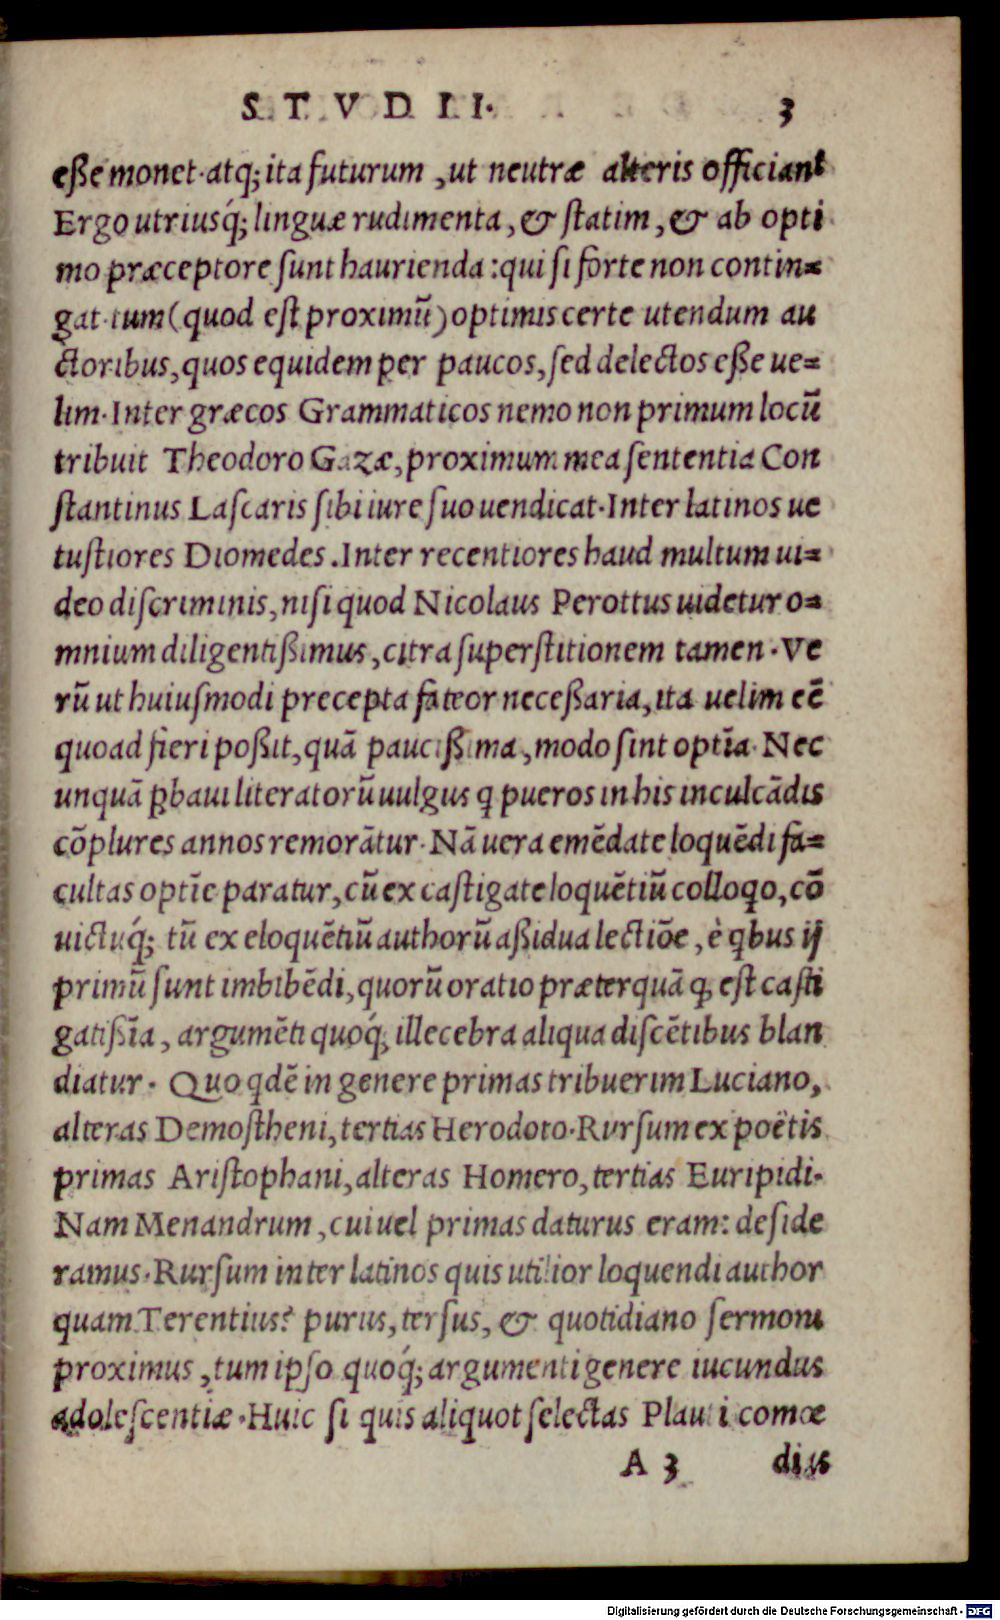 STVDII. 3
eſſe monet. atq; ita futurum, ut neutræ alteris officiant
Ergo utriusq́; linguæ rudimenta, & ſtatim, & ab opti
mo præceptore ſunt haurienda: qui ſi forte non contin=
gat. tum (quod eſt proximũ) optimis certe utendum au
ctoribus, quos equidem per paucos, ſed delectos eſſe ue=
lim. Inter græcos Grammaticos nemo non primum locũ
tribuit Theodoro Gazæ, proximum mea ſententia Con
ſtantinus Laſcaris ſibi iure ſuo uendicat. Inter latinos ue
tuſtiores Diomedes. Inter recentiores haud multum ui=
deo diſcriminis, niſi quod Nicolaus Perottus uidetur o=
mnium diligentißimus, citra ſuperſtitionem tamen. Ve
rũ ut huiuſmodi precepta fateor neceßaria, ita uelim eẽ
quoad fieri poßit, quã paucißima, modo ſint optĩa. Nec
unquã ꝓbaui literatorũ uulgus q pueros in his inculcãdis
cõplures annos remorãtur. Nã uera emẽdate loquẽdi fa=
cultas optĩe paratur, cũ ex caſtigate loquẽtiũ colloqo, cõ
uictuq́; tũ ex eloquẽtiũ authorũ aßidua lectiõe, è qbus ij
primũ ſunt imbibẽdi, quorũ oratio præterquã q, eſt caſti
gatißĩa, argumẽti quoq́; illecebra aliqua diſcẽtibus blan
diatur. Quo qdẽ in genere primas tribuerim Luciano,
alteras Demoſtheni, tertias Herodoto. Rurſum ex poëtis
primas Ariſtophani, alteras Homero, tertias Euripidi.
Nam Menandrum, cui uel primas daturus eram: deſide
ramus. Rurſum inter latinos quis utilior loquendi author
quam Terentius? purus, terſus, & quotidiano ſermoni
proximus, tum ipſo quoq́; argumenti genere iucundus
adoleſcentiæ. Huic ſi quis aliquot ſelectas Plauti comœ
A 3 dias
Digitalisierung gefördert durch die Deutsche Forschungsgemeinschaft - DFG